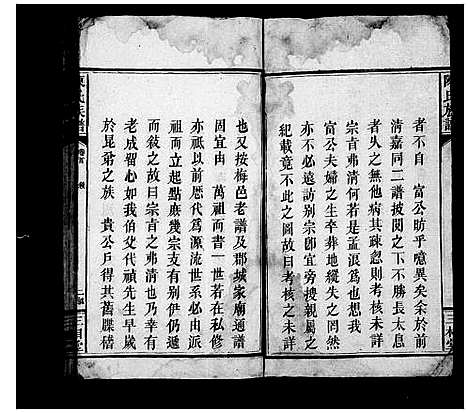 者不自 富公昉乎噫異矣余於前
清嘉同二譜披閱之下不勝長太息
者久之無他病其疎忽則考核未詳
宗㫖弗清何若是孟浪爲也想我
富公夫婦之生卒葬地縱失之罔然
亦不必遠訪別宗卽宜旁搜親屬之
紀載竟不此之圖故曰考核之未詳
也又按梅邑老譜及郡城家廟通譜
同宜由 萬祖而書一世若在私修
亦祗以前歷代爲源流世系必由派
祖而立起點庶幾宗支有別伊仍遞
而後之故曰宗㫖之弗清也乃幸有
老成留心如我伯交代禎先生早歲
於昆弟之族 貴公戶得其舊牒禧
陳氏族譜
卷首